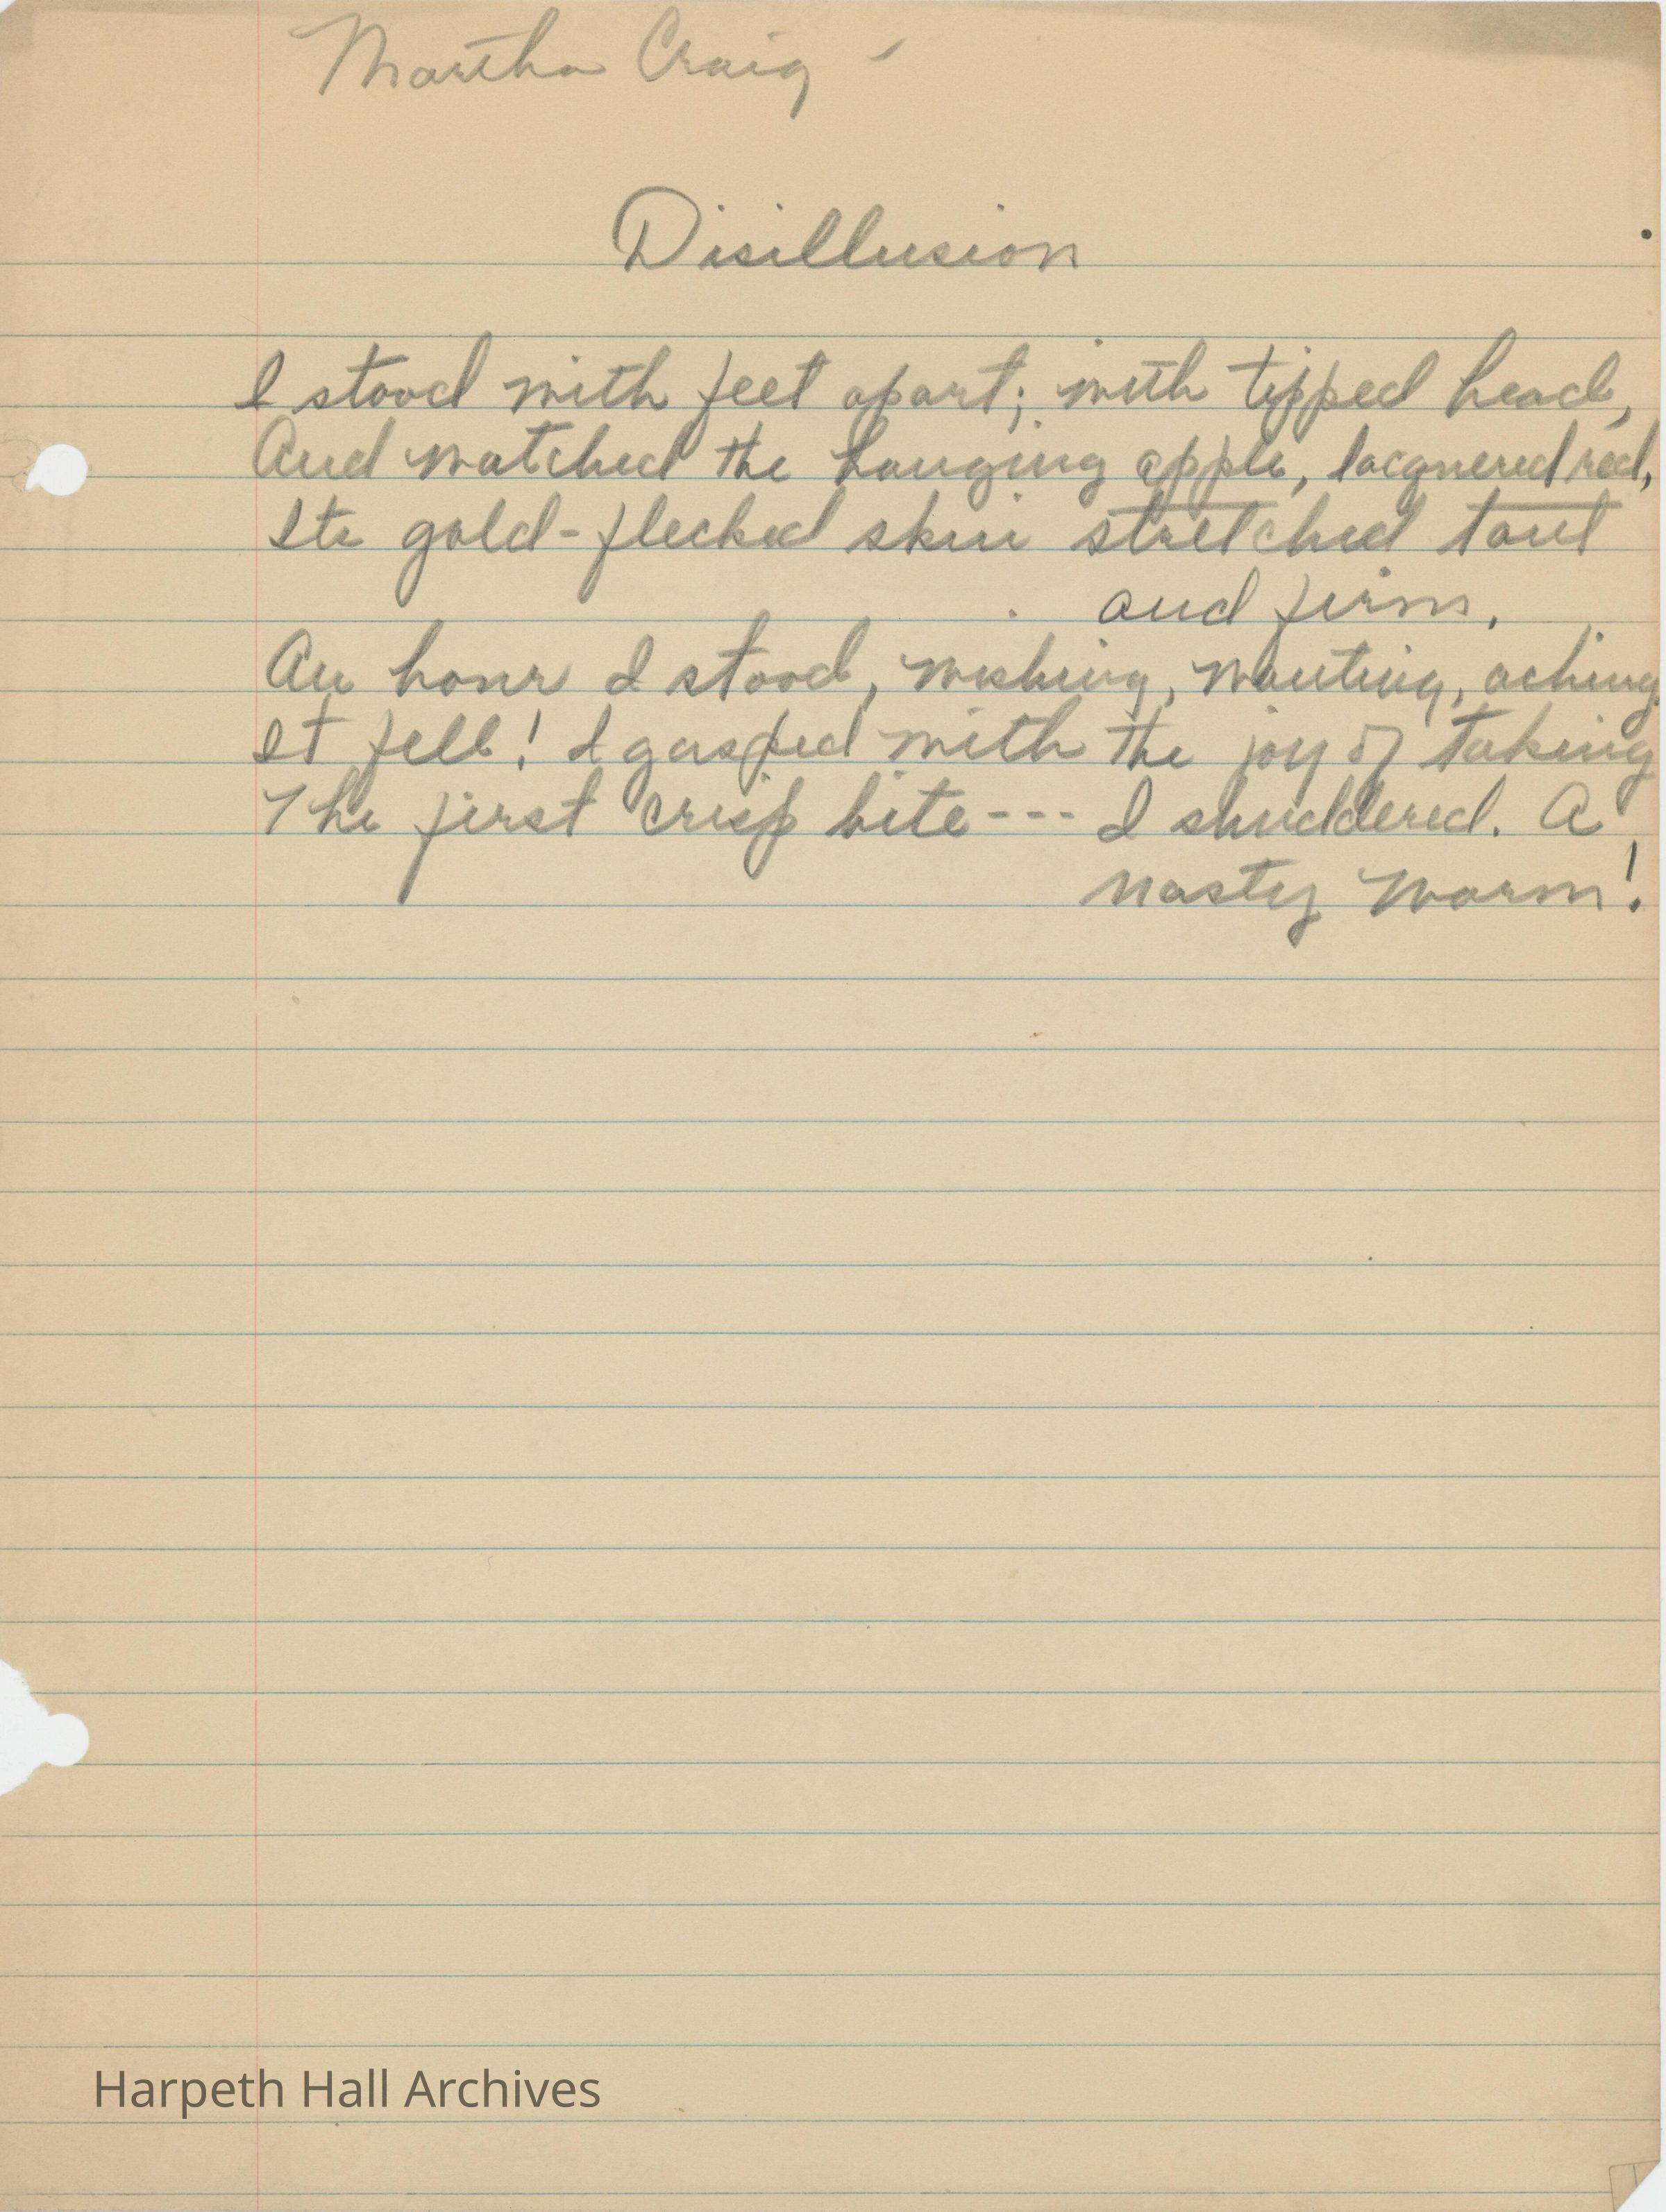 Martha Craig -
Disillusion
I stood with feet apart; with tipped head,
And watched the hanging apple, lacquered red,
Its gold-flecked skin stretched taut
and firm.
An hour I stood, wishing, wanting, aching
It fell! I gasped with the joy of taking
The first crisp bite--- I shuddered. A
nasty worm!
Harpeth Hall Archives